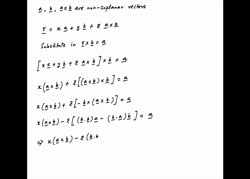 a, b, a×b are non-coplanar vectors
r = x a + y b + z a×b
Substitute in r×b = a
[x a + y b + z a×b]×b = a
x(a×b) + z[(a×b)×b] = a
x(a×b) + z[-b×(a×b)] = a
x(a×b) - z[(b.b)a - (b.a)b] = a
⇒ x(a×b) - z(b.b